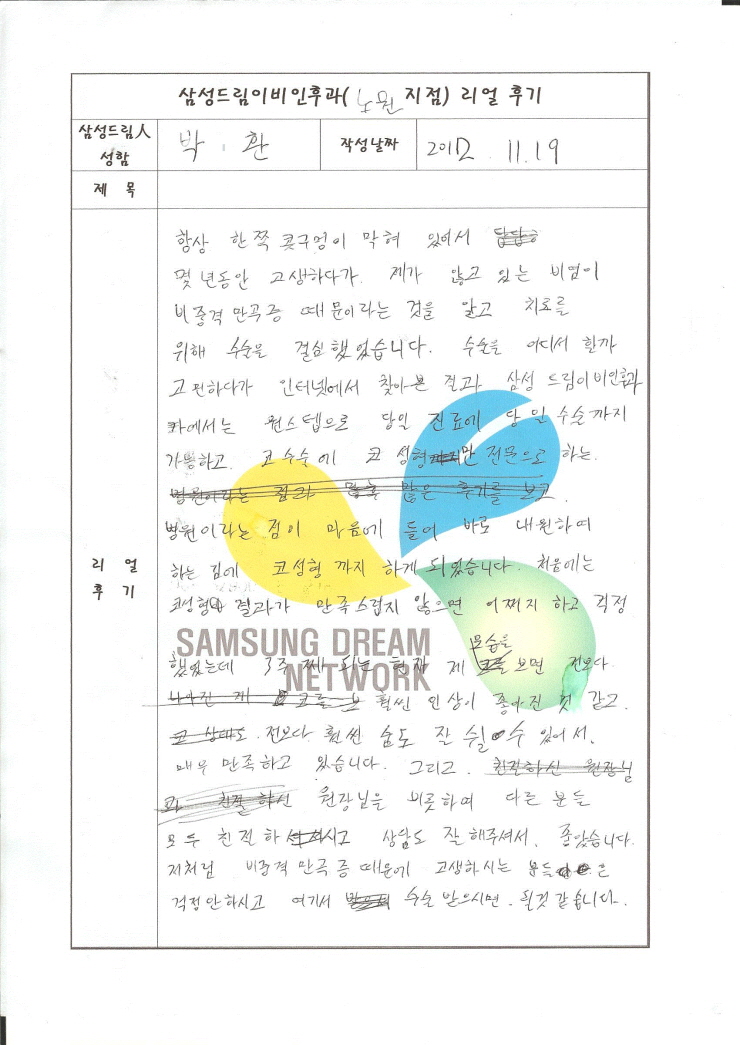 삼성드림이비인후과( 노원 지점) 리얼 후기
삼성드림人 성함
박 환
작성날짜
2012. 11.19
제 목
리얼 후기
항상 한쪽 콧구멍이 막혀 있어서
몇 년동안 고생하다가. 제가 앓고 있는 비염이
비중격만곡증 때문이라는 것을 알고 치료를
위해 수술을 결심했었습니다. 수술을 어디서 할까
고민하다가 인터넷에서 찾아본 결과 삼성 드림이비인후과
에서는 원스텝으로 당일 진료에 당일 수술까지
가능하고. 코수술에 코 성형만 전문으로 하는.
병원이라는 점과 많은 후기를 보고.
병원이라는 점이 마음에 들어 바로 내원하여
하는 김에 코성형 까지 하게 되었습니다. 처음에는
코성형 결과가 만족스럽지 않으면 어쩌지 하고 걱정
했었는데 3주 째 되는 현재 제 모습을 보면 전보다
나아진 게 코를 보 훨씬 인상이 좋아진 것 같고.
코 상태도. 전보다 훨씬 숨도 잘 쉴 수 있어서.
매우 만족하고 있습니다. 그리고. 친절하신 원장님
과 친절 하신 원장님을 비롯하여 다른 분들
모두 친절하시고 상담도 잘 해주셔서. 좋았습니다.
저처럼 비중격 만곡증 때문에 고생하시는 분들은
걱정안하시고 여기서 수술 받으시면. 될것 같습니다.
SAMSUNG DREAM
NETWORK